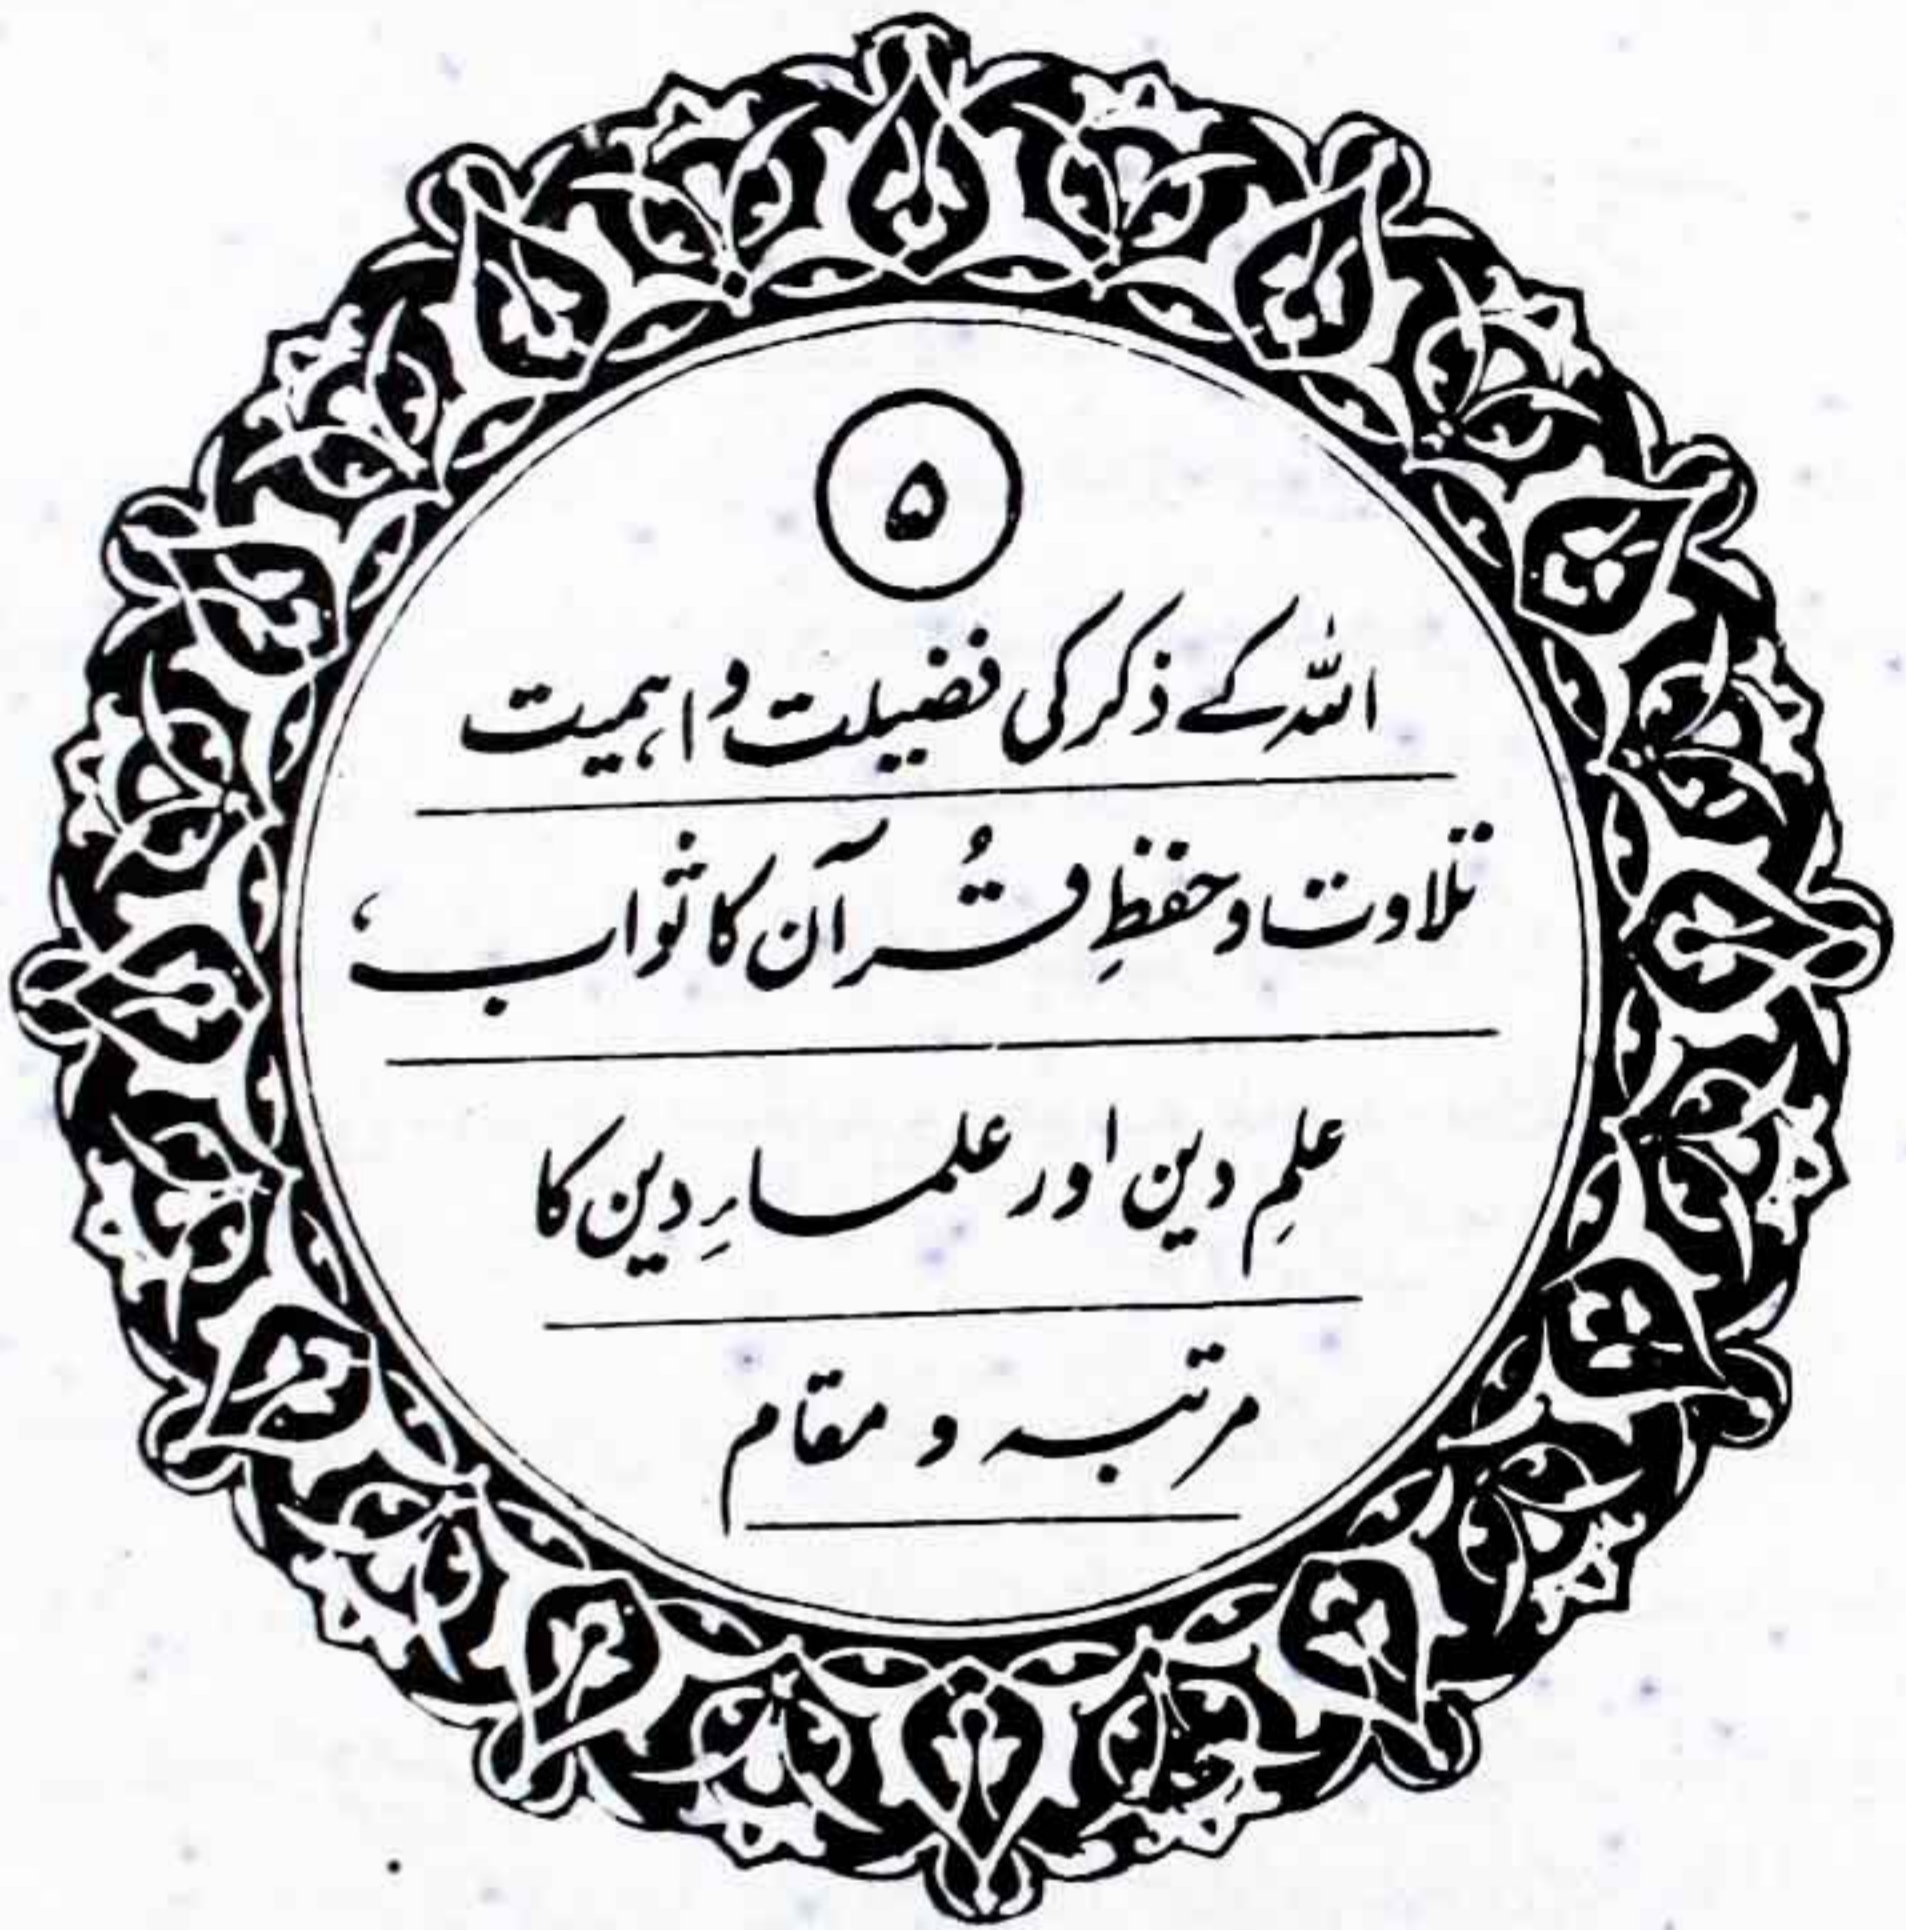 ۵
اللہ کے ذکر کی فضیلت و اہمیت
تلاوت و حفظِ قُرآن کا ثواب،
علمِ دین اور علماءِ دین کا
مرتبہ و مقام